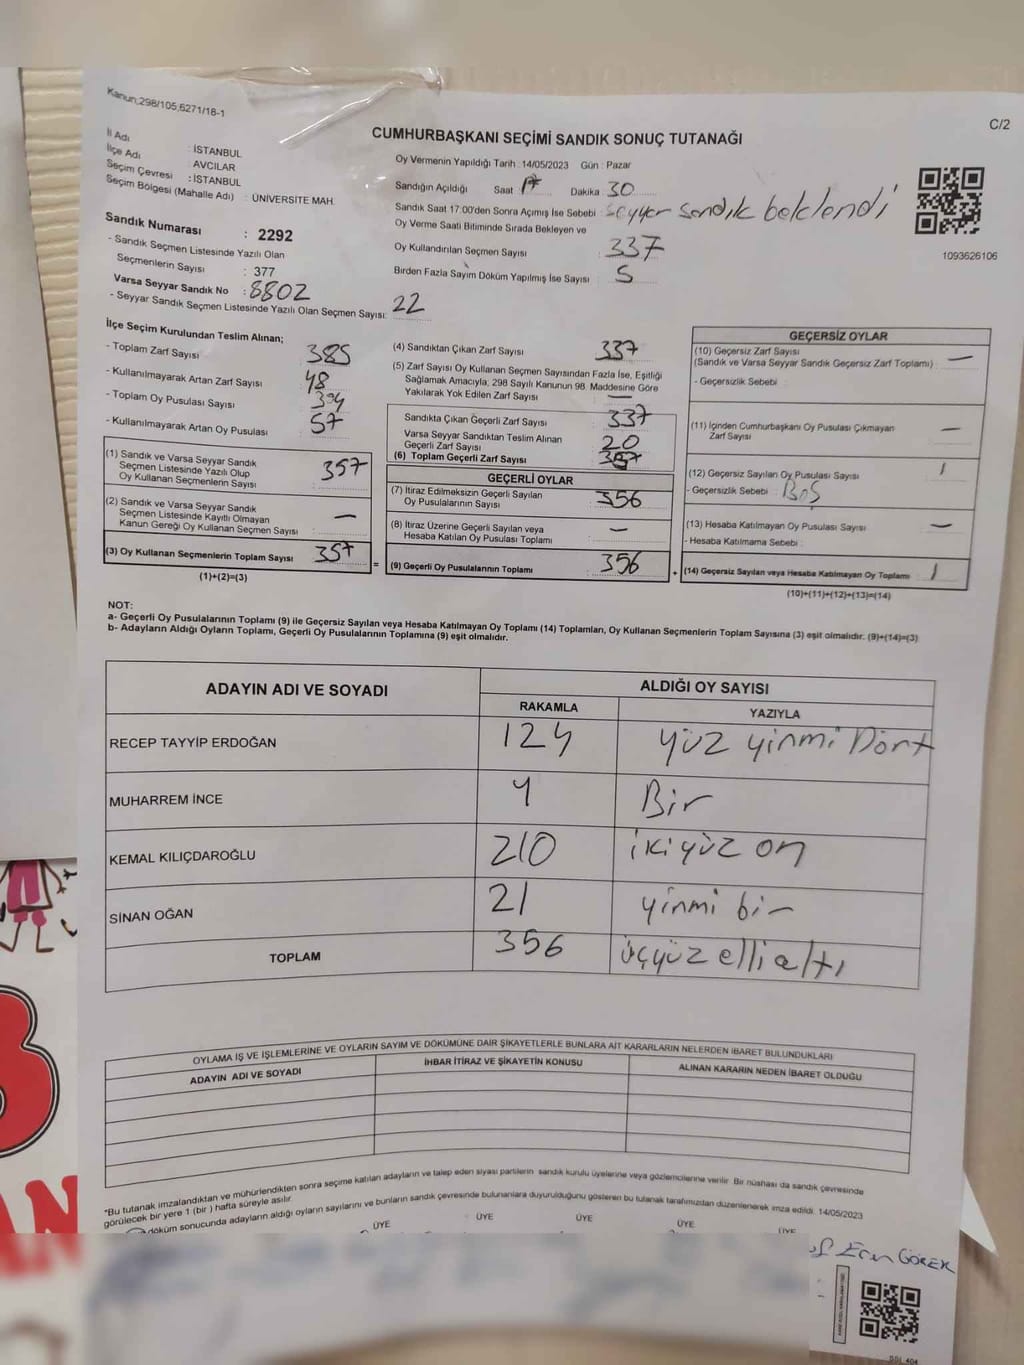 Kanun;298/105,6271/18-1
C/2
CUMHURBAŞKANI SEÇİMİ SANDIK SONUÇ TUTANAĞI
İl Adı : İSTANBUL
İlçe Adı : AVCILAR
Seçim Çevresi : İSTANBUL
Seçim Bölgesi (Mahalle Adı) : ÜNİVERSİTE MAH.
Oy Vermenin Yapıldığı Tarih :14/05/2023 Gün : Pazar
Sandığın Açıldığı Saat 17 Dakika 30
Sandık Saat 17:00'den Sonra Açımış İse Sebebi : Seyyar sandık beklendi
Oy Verme Saati Bitiminde Sırada Bekleyen ve
Oy Kullandırılan Seçmen Sayısı : 337
Birden Fazla Sayım Döküm Yapılmış İse Sayısı : 5
1093626106
Sandık Numarası : 2292
- Sandık Seçmen Listesinde Yazılı Olan
Seçmenlerin Sayısı : 377
Varsa Seyyar Sandık No : 8802
- Seyyar Sandık Seçmen Listesinde Yazılı Olan Seçmen Sayısı: 22
İlçe Seçim Kurulundan Teslim Alınan;
- Toplam Zarf Sayısı 385
- Kullanılmayarak Artan Zarf Sayısı 48
- Toplam Oy Pusulası Sayısı 394
- Kullanılmayarak Artan Oy Pusulası 57
(1) Sandık ve Varsa Seyyar Sandık
Seçmen Listesinde Yazılı Olup
Oy Kullanan Seçmenlerin Sayısı 357
(2) Sandık ve Varsa Seyyar Sandık
Seçmen Listesinde Kayıtlı Olmayan
Kanun Gereği Oy Kullanan Seçmen Sayısı —
(3) Oy Kullanan Seçmenlerin Toplam Sayısı 357
(1)+(2)=(3)
(4) Sandıktan Çıkan Zarf Sayısı 337
(5) Zarf Sayısı Oy Kullanan Seçmen Sayısından Fazla İse, Eşitliği
Sağlamak Amacıyla; 298 Sayılı Kanunun 98. Maddesine Göre
Yakılarak Yok Edilen Zarf Sayısı —
Sandıkta Çıkan Geçerli Zarf Sayısı 337
Varsa Seyyar Sandıktan Teslim Alınan
Geçerli Zarf Sayısı 20
(6) Toplam Geçerli Zarf Sayısı 357
GEÇERLİ OYLAR
(7) İtiraz Edilmeksizin Geçerli Sayılan
Oy Pusulalarının Sayısı 356
(8) İtiraz Üzerine Geçerli Sayılan veya
Hesaba Katılan Oy Pusulası Toplamı —
(9) Geçerli Oy Pusulalarının Toplamı 356
GEÇERSİZ OYLAR
(10) Geçersiz Zarf Sayısı
(Sandık ve Varsa Seyyar Sandık Geçersiz Zarf Toplamı) —
- Geçersizlik Sebebi :
(11) İçinden Cumhurbaşkanı Oy Pusulası Çıkmayan
Zarf Sayısı —
(12) Geçersiz Sayılan Oy Pusulası Sayısı 1
- Geçersizlik Sebebi : BOŞ
(13) Hesaba Katılmayan Oy Pusulası Sayısı —
- Hesaba Katılmama Sebebi :
= + (14) Geçersiz Sayılan veya Hesaba Katılmayan Oy Toplamı 1
(10)+(11)+(12)+(13)=(14)
NOT:
a- Geçerli Oy Pusulalarının Toplamı (9) ile Geçersiz Sayılan veya Hesaba Katılmayan Oy Toplamı (14) Toplamları, Oy Kullanan Seçmenlerin Toplam Sayısına (3) eşit olmalıdır. (9)+(14)=(3)
b- Adayların Aldığı Oyların Toplamı, Geçerli Oy Pusulalarının Toplamına (9) eşit olmalıdır.
ADAYIN ADI VE SOYADI ALDIĞI OY SAYISI
RAKAMLA YAZIYLA
RECEP TAYYİP ERDOĞAN 124 yüz yirmi Dört
MUHARREM İNCE 1 Bir
KEMAL KILIÇDAROĞLU 210 ikiyüz on
SİNAN OĞAN 21 yirmi bir
TOPLAM 356 üçyüz elli altı
OYLAMA İŞ VE İŞLEMLERİNE VE OYLARIN SAYIM VE DÖKÜMÜNE DAİR ŞİKAYETLERLE BUNLARA AİT KARARLARIN NELERDEN İBARET BULUNDUKLARI
ADAYIN ADI VE SOYADI İHBAR İTİRAZ VE ŞİKAYETİN KONUSU ALINAN KARARIN NEDEN İBARET OLDUĞU
*Bu tutanak imzalandıktan ve mühürlendikten sonra seçime katılan adayların ve talep eden siyasi partilerin sandık kurulu üyelerine veya gözlemcilerine verilir. Bir nüshası da sandık çevresinde
görülecek bir yere 1 (bir ) hafta süreyle asılır.
döküm sonucunda adayların aldığı oyların sayılarını ve bunların sandık çevresinde bulunanlara duyurulduğunu gösteren bu tutanak tarafımızdan düzenlenerek imza edildi. 14/05/2023
ÜYE ÜYE ÜYE ÜYE ÜYE
GÖREK